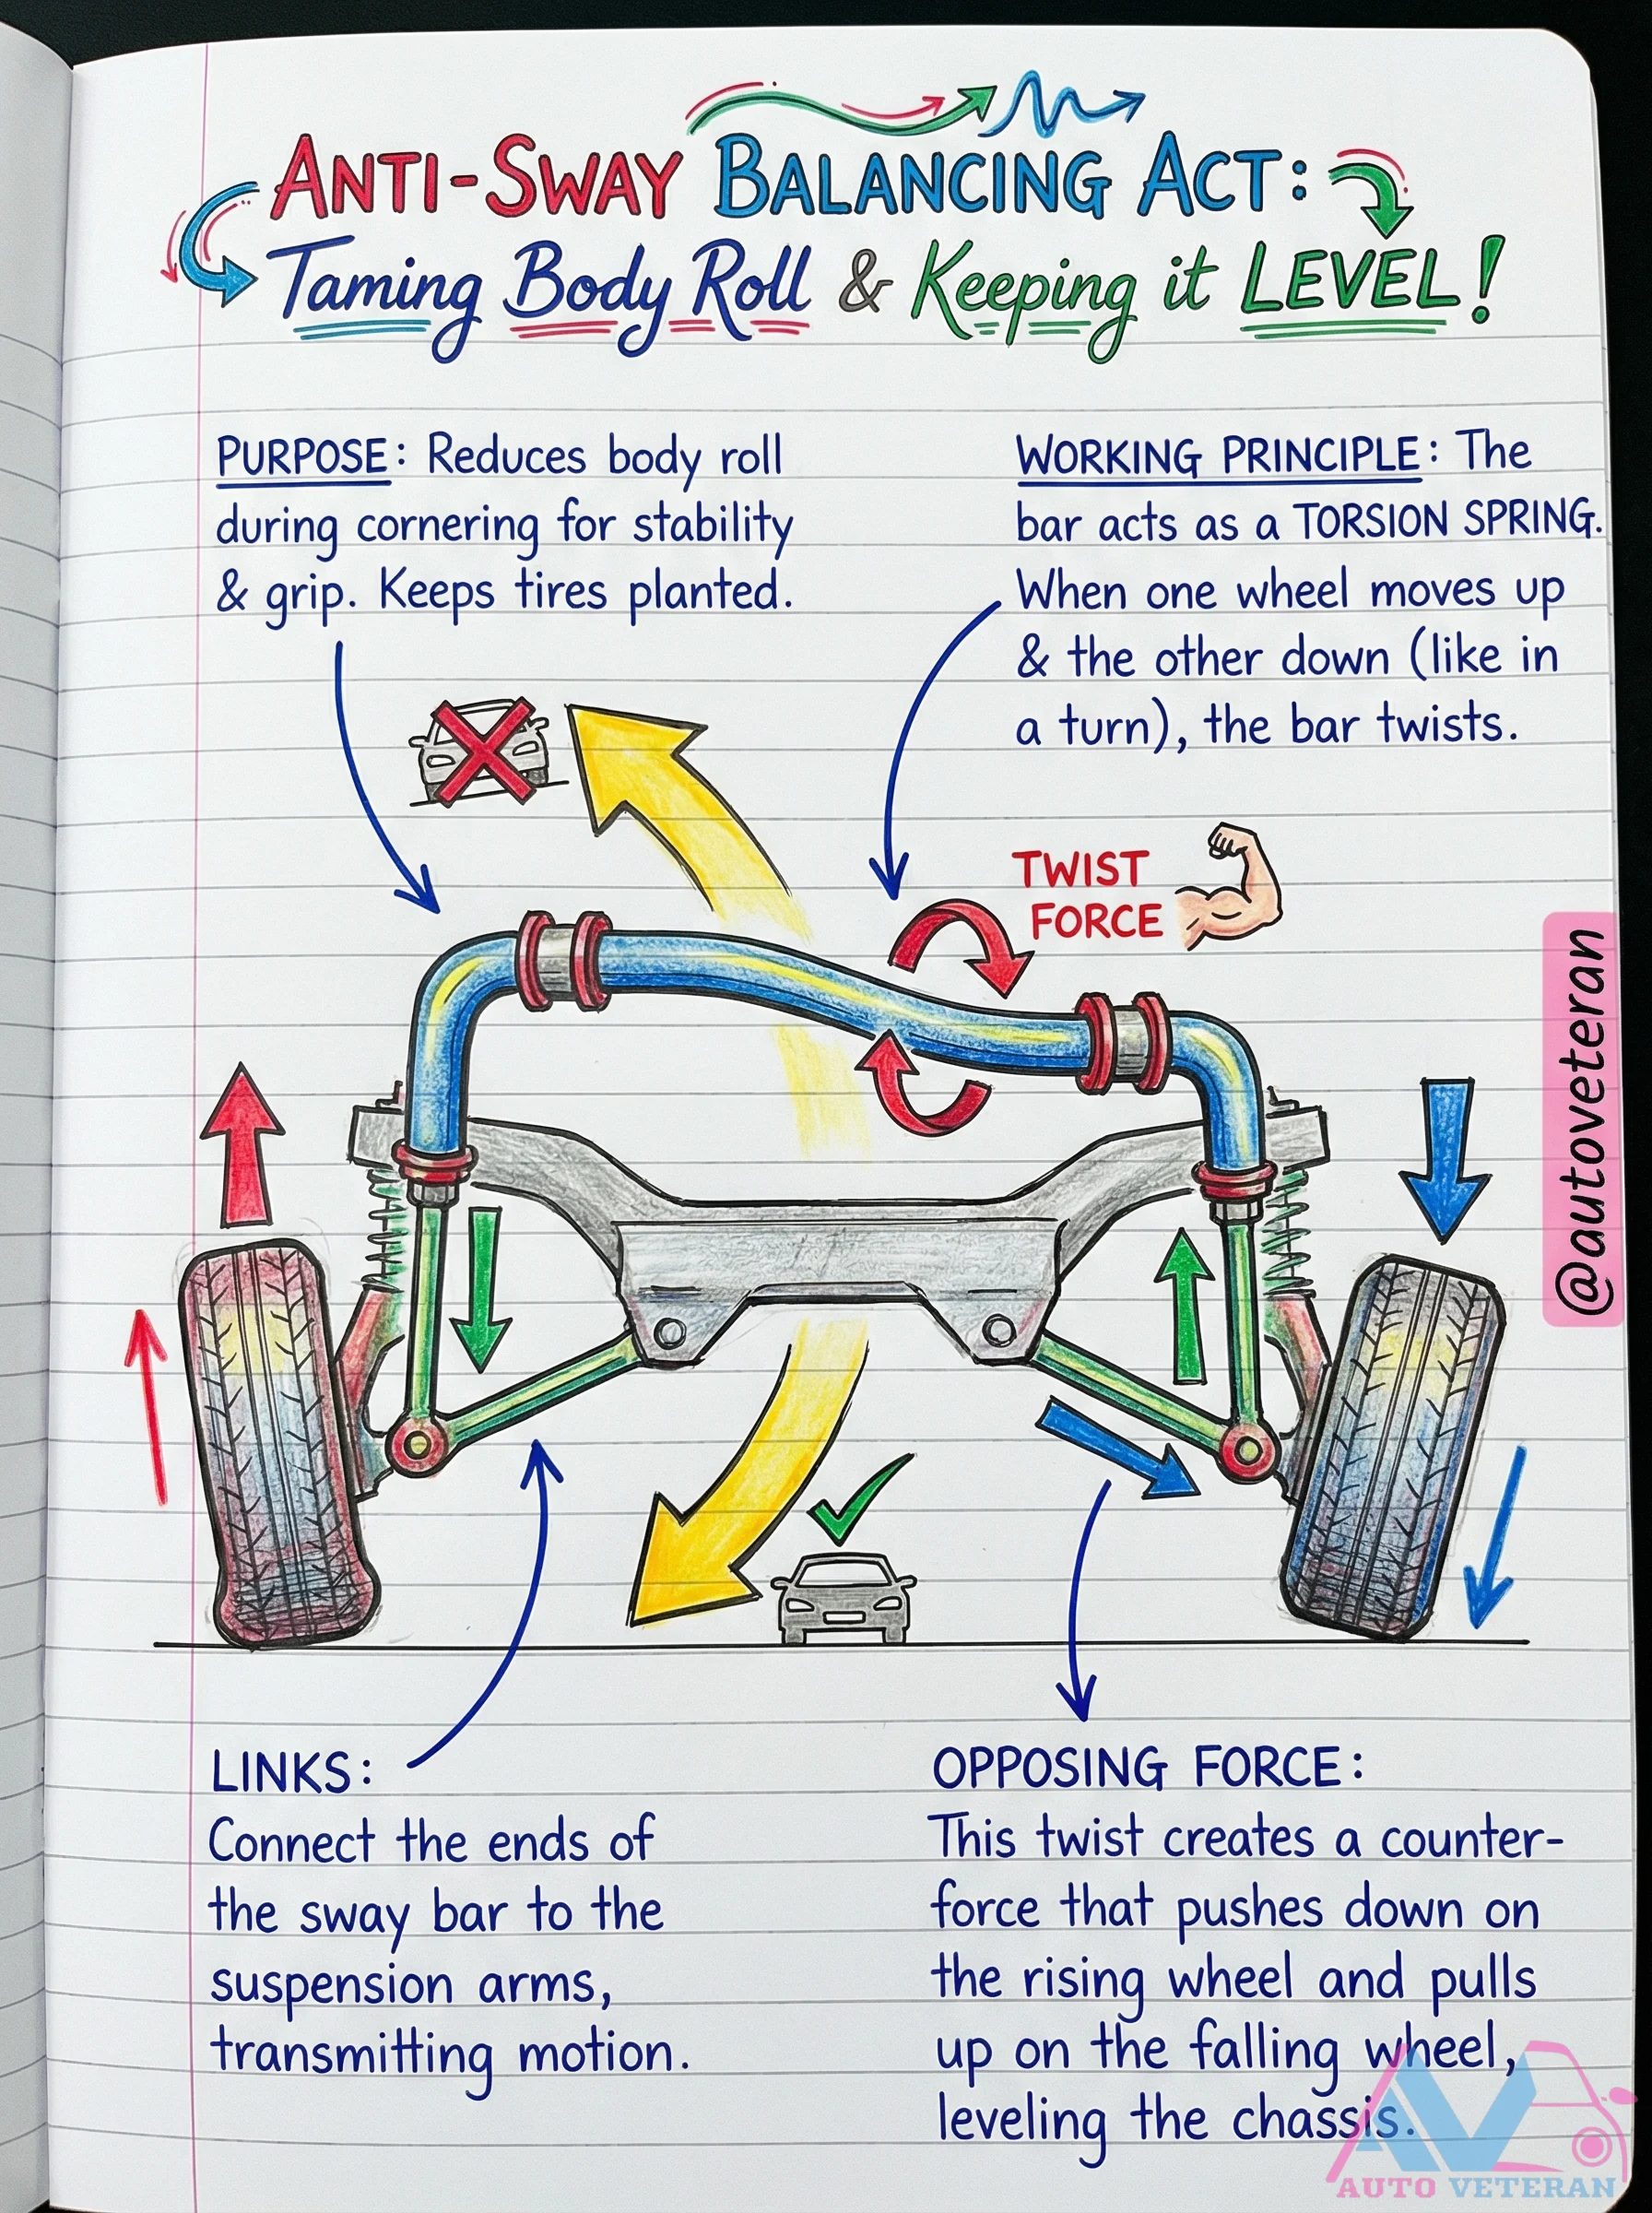 ANTI-SWAY BALANCING ACT:
Taming Body Roll & Keeping it LEVEL!
PURPOSE: Reduces body roll
during cornering for stability
& grip. Keeps tires planted.
WORKING PRINCIPLE: The
bar acts as a TORSION SPRING.
When one wheel moves up
& the other down (like in
a turn), the bar twists.
TWIST
FORCE
@autoveteran
LINKS:
Connect the ends of
the sway bar to the
suspension arms,
transmitting motion.
OPPOSING FORCE:
This twist creates a counter-
force that pushes down on
the rising wheel and pulls
up on the falling wheel,
leveling the chassis.
AV
AUTO VETERAN